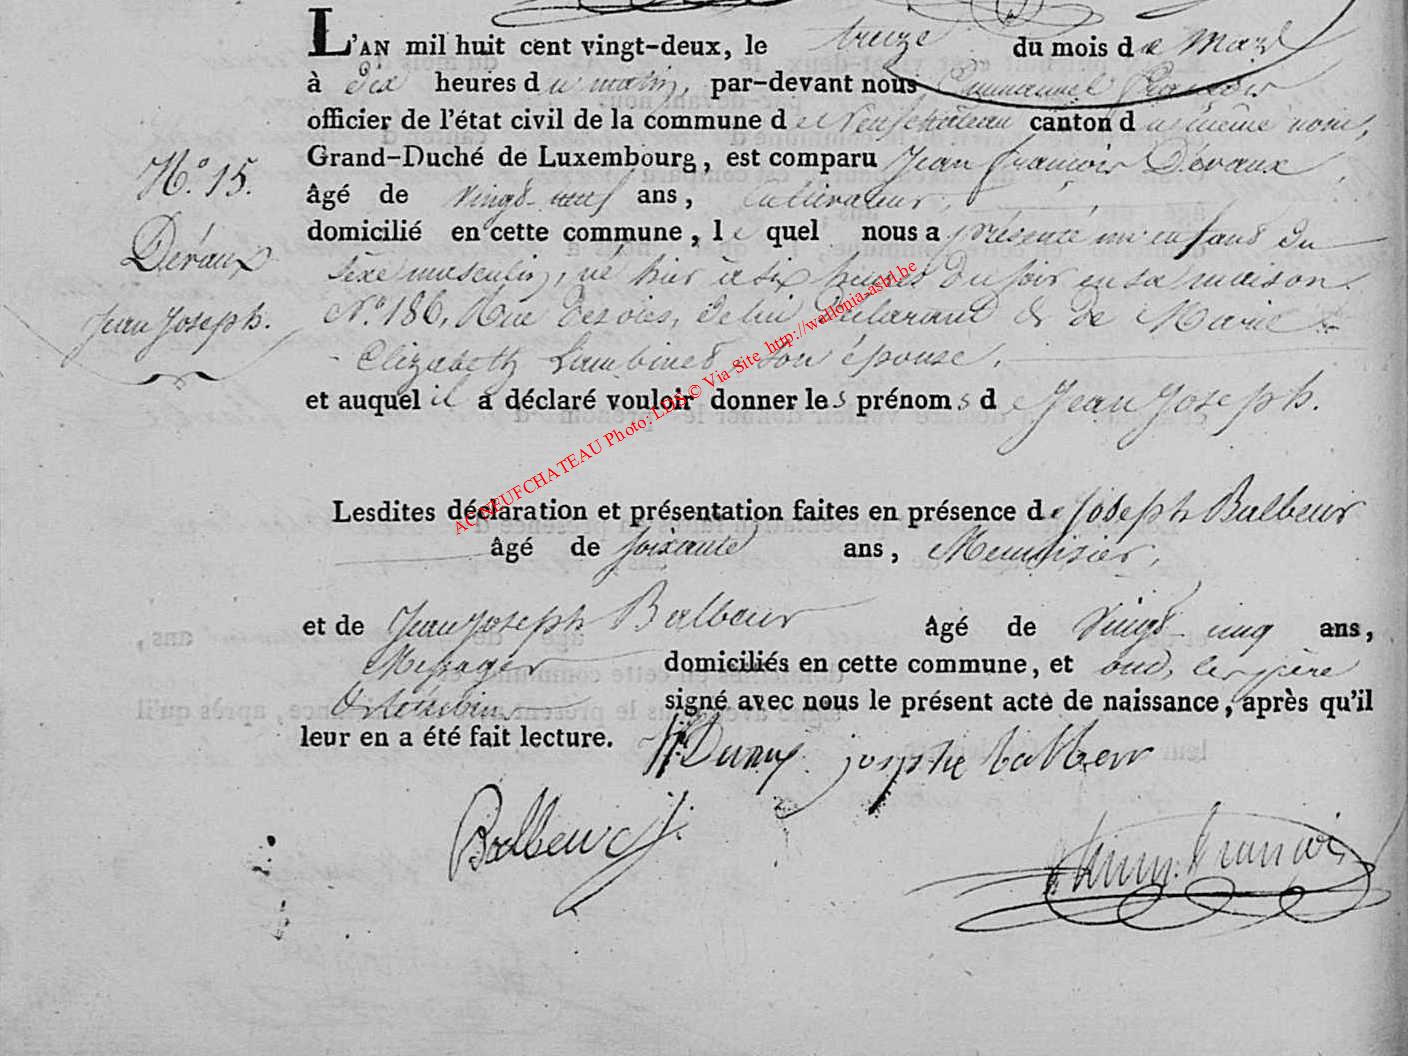 L'AN mil huit cent vingt-deux, le treize du mois de Mars
à dix heures du matin, par-devant nous Emmanuel François
officier de l'état civil de la commune de Neufchâteau canton du même nom,
Grand-Duché de Luxembourg, est comparu Jean François Dévaux
N.° 15.
âgé de vingt-neuf ans, cultivateur,
domicilié en cette commune, lequel nous a présenté un enfant du
Dévaux
sèxe masculin, né hier à six heures du soir en sa maison
Jean Joseph.
N.° 186, Rue de lui Déclarant & de Marie
Elizabeth Lambinet son épouse.
et auquel il a déclaré vouloir donner les prénoms de Jean Joseph.
AC NEUFCHATEAU Photo: LDS © Via Site http://wallonia-asbl.be
Lesdites déclaration et présentation faites en présence de Joseph Balbeur
âgé de soixante ans, Menuisier,
et de Jean Joseph Balbeur âgé de vingt-cinq ans,
Messager domiciliés en cette commune, et ont, les père
& témoins signé avec nous le présent acte de naissance, après qu'il
leur en a été fait lecture.
josphe balbeur
Balbeur J. J.
François